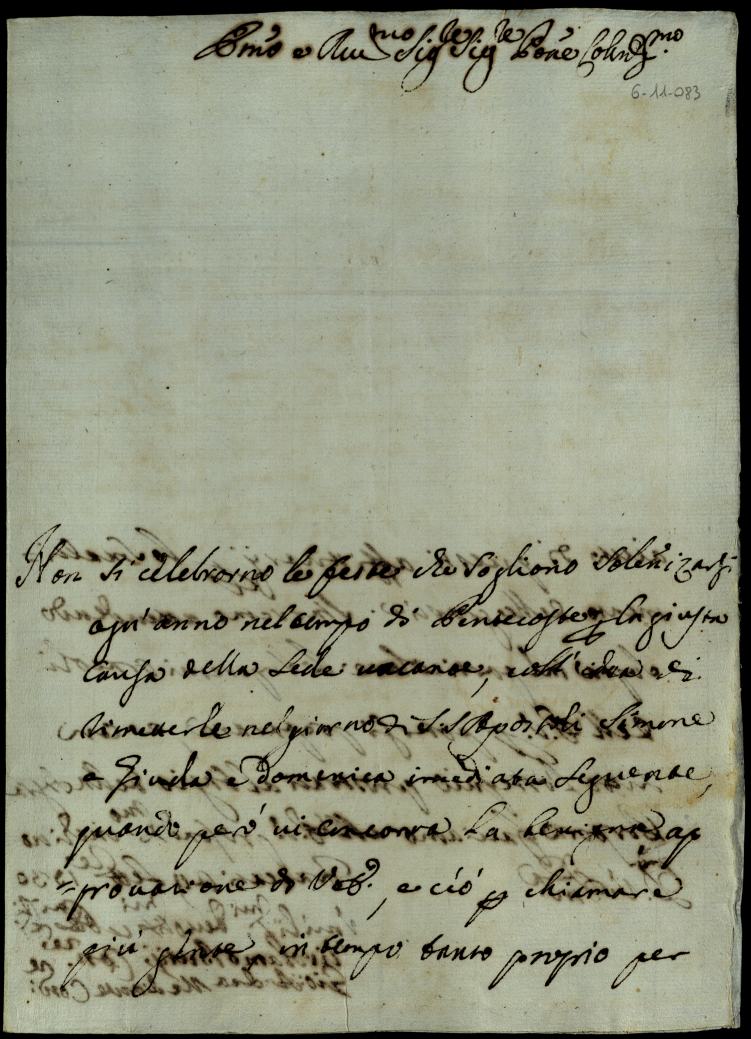 Em̃o e Rev.mo Sig.re Sig.re Pōne Colend.mo
6-11-083
Non si celebrorno le feste che sogliono solenizarsi
ogn'anno nel tempo di Pentecoste p la giusta
causa della Sede vacante, coll'idea di
rimetterle nel giorno di SS. Apostoli Simone
e Giuda e Domenica imediata seguente,
quando però vi concorra la benigna ap
=provazione di , e ciò p chiamare
più gente, in tempo tanto proprio per